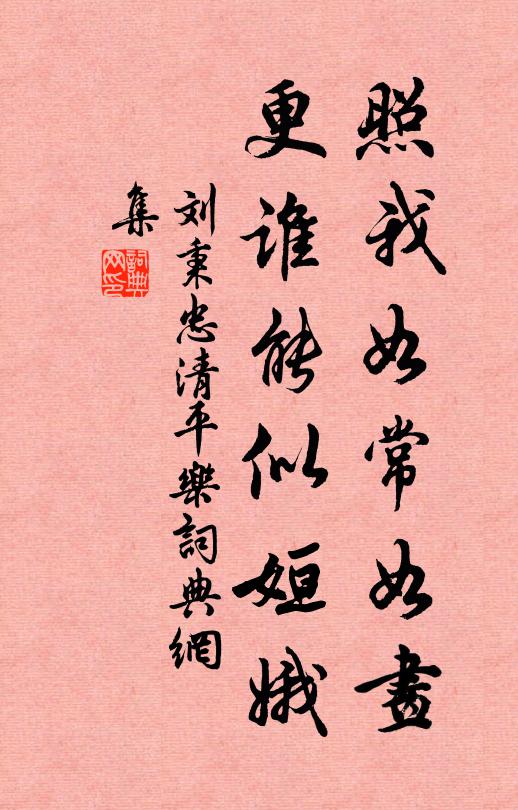 照我如常如畫
更谁能似姮娥
刘秉忠清平樂詞典網
集
詞典網印